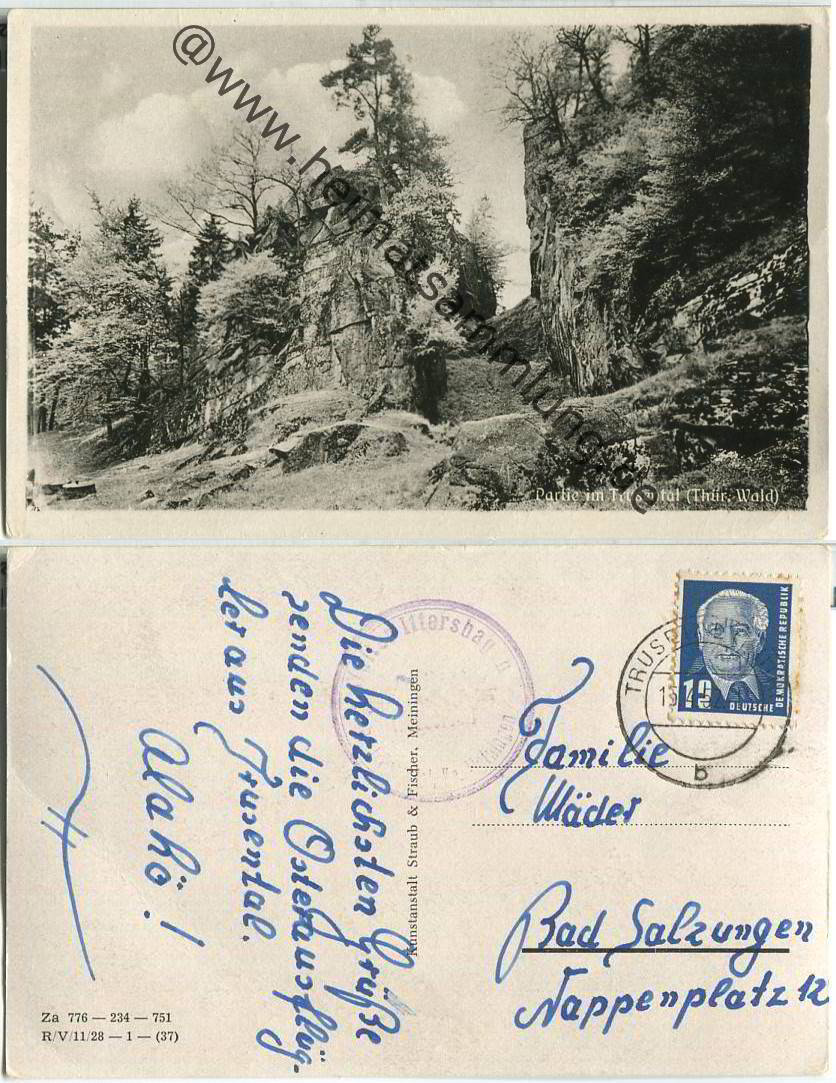 @www.heimatsammlung.de
Partie im Trusental (Thür. Wald)
Die herzlichsten Grüße
senden die Osterausflüg-
ler aus Trusental.
Alahö!
Kunstanstalt Straub & Fischer, Meiningen
Za 776 — 234 — 751
R/V/11/28 — 1 — (37)
10
DEUTSCHE
DEMOKRATISCHE REPUBLIK
b
Familie
Mäder
Bad Salzungen
Nappenplatz 12